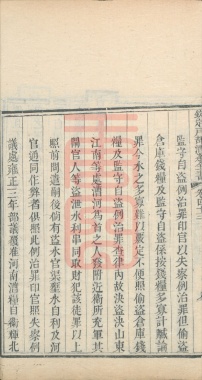 監守自盜例治罪印官以失察例治罪但偷盜
倉庫錢糧及監守自盜係按錢糧多寡計贓論
罪今水之多寡難以廣定不便照偷盜倉庫錢
糧及監守自盜例治罪查律內故決盜決山東
江南等處漕河為首之人發附近衛所充軍其
閘官人等盜泄水利串同取財犯該徒罪以上
照前問遣嗣後倘有盜水官渠壅水自利及河
官通同作弊者俱照此例治罪印官照失察例
議處雍正二年部議覆准河南漕糧自衛輝北